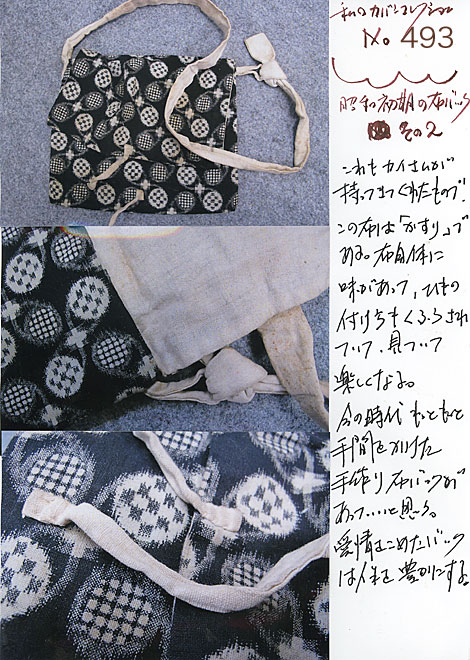 私のカバンコレクション
No. 493
昭和初期の布バック
その2
これもカイさんが
持ってきてくれたもので、
この布は「かすり」で
ある。布自体に
味があって、ひもの
付けちもくふうされ
ていて、見ていて
楽しくなる。
今の時代もっともっと
手間をかけた
手作り布バックが
あっていいと思う。
愛情をこめたバック
は人生を豊かにする。